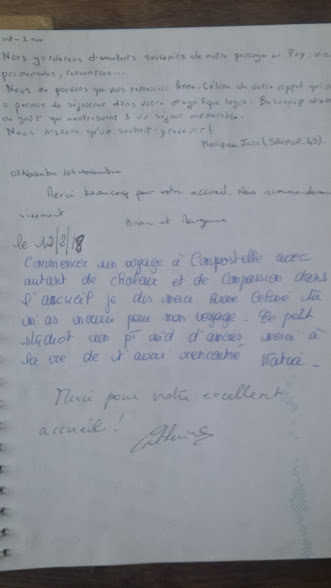 Nous garderons d'excellents souvenirs de notre passage au Puy : vis
promenades, rencontres...
Nous ne pouvons que vous remercier Anne-Céline de votre appart qui
a permis de séjourner dans votre magnifique logis. Beaucoup
de goût qui contribuent à un séjour mémorable.
Nous n'avons qu'un souhait : y revenir !
Monique
03 Novembre 2017
Merci beaucoup pour votre accueil. Nous recommandons
vivement
Brian et
le 12/2/18
Commencer un voyage à Compostelle avec
autant de chaleur et de compassion dans
l'accueil je dis merci Anne Celine tu
m'as nourrie pour mon voyage. Ce petit
studio un pt nid d'amour merci à
la vie de t'avoir rencontré
Merci pour votre excellent
accueil !